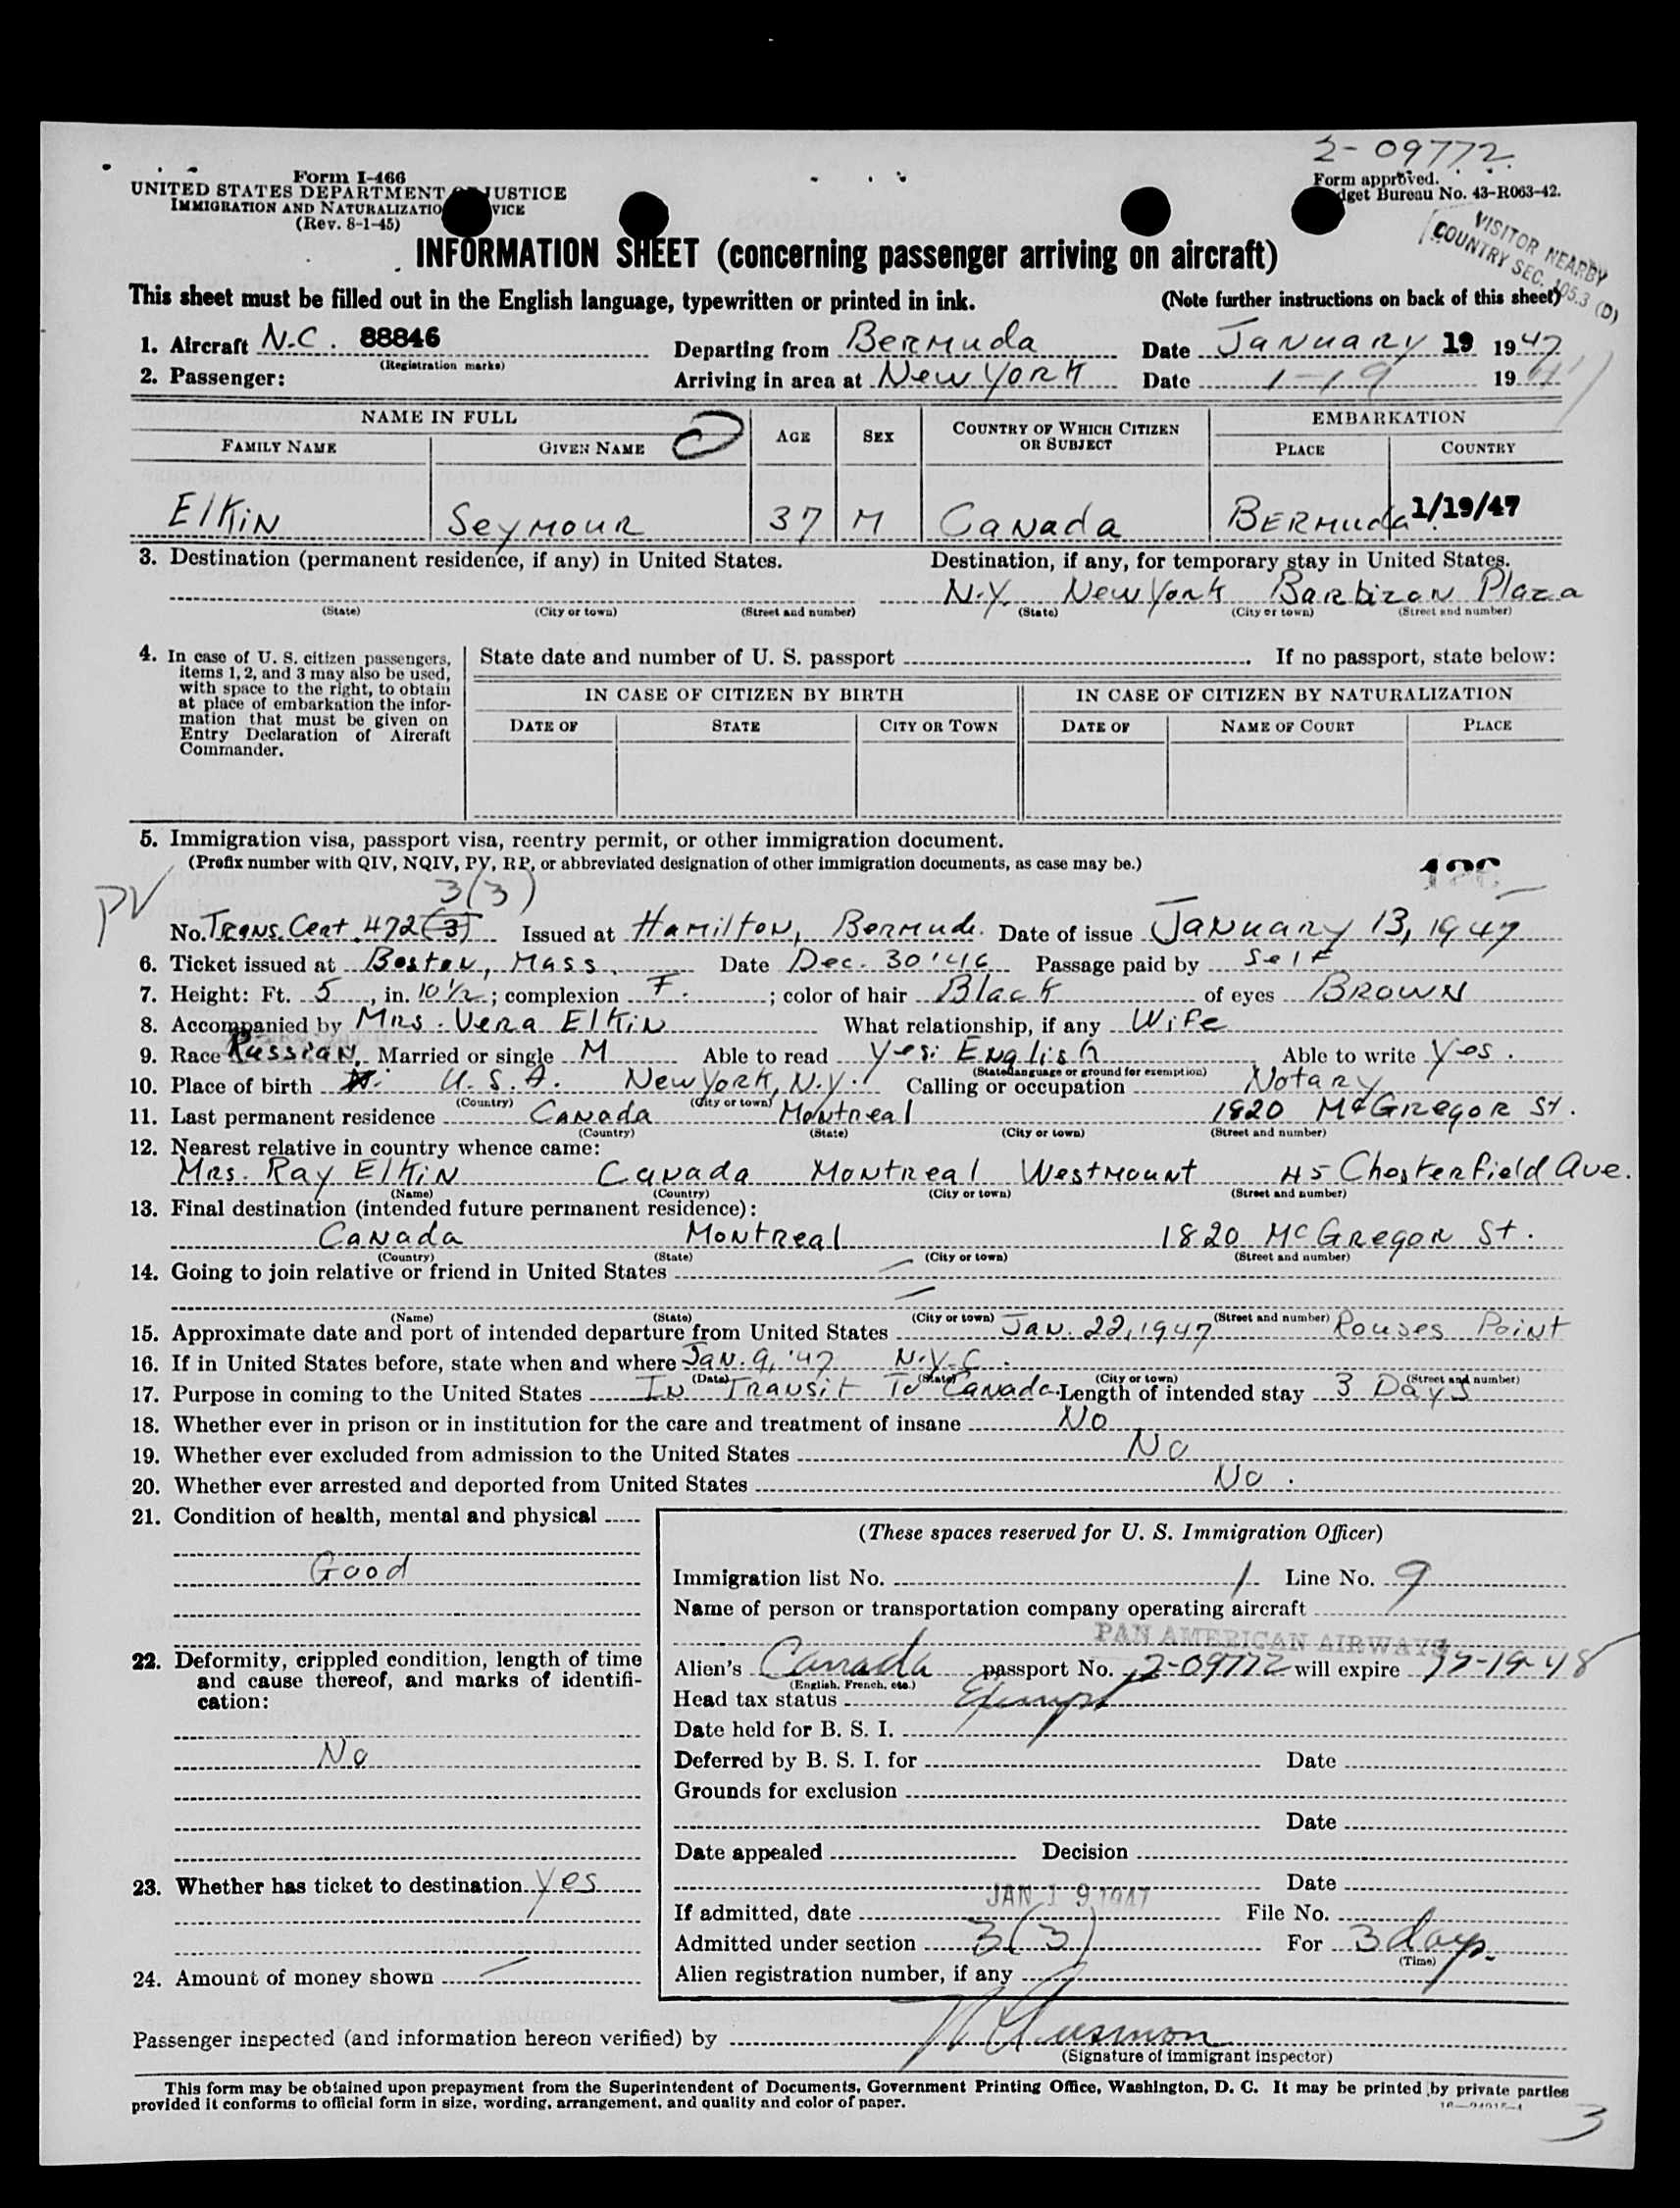 2-09772.
Form I-466
UNITED STATES DEPARTMENT OF JUSTICE
Form approved.
IMMIGRATION AND NATURALIZATION SERVICE
Budget Bureau No. 43-R063-42.
(Rev. 8-1-45)
VISITOR NEARBY
COUNTRY SEC. 105.3 (D)
INFORMATION SHEET (concerning passenger arriving on aircraft)
This sheet must be filled out in the English language, typewritten or printed in ink. (Note further instructions on back of this sheet)
1. Aircraft N.C. 88846 Departing from Bermuda Date January 19 1947
(Registration marks)
2. Passenger: Arriving in area at New York Date 1-19 1947
NAME IN FULL AGE SEX COUNTRY OF WHICH CITIZEN OR SUBJECT EMBARKATION
FAMILY NAME GIVEN NAME PLACE COUNTRY
Elkin Seymour 37 M Canada Bermuda 1/19/47
3. Destination (permanent residence, if any) in United States. Destination, if any, for temporary stay in United States.
N.Y. New York Barbizon Plaza
(State) (City or town) (Street and number) (State) (City or town) (Street and number)
4. In case of U. S. citizen passengers, items 1, 2, and 3 may also be used, with space to the right, to obtain at place of embarkation the information that must be given on Entry Declaration of Aircraft Commander.
State date and number of U. S. passport . If no passport, state below:
IN CASE OF CITIZEN BY BIRTH IN CASE OF CITIZEN BY NATURALIZATION
DATE OF STATE CITY OR TOWN DATE OF NAME OF COURT PLACE
5. Immigration visa, passport visa, reentry permit, or other immigration document.
(Prefix number with QIV, NQIV, PV, RP, or abbreviated designation of other immigration documents, as case may be.)
PV 3(3)
No. Trans. Cert. 472 (3) Issued at Hamilton, Bermuda. Date of issue January 13, 1947
6. Ticket issued at Boston, Mass. Date Dec. 30 '46 Passage paid by Self
7. Height: Ft. 5, in. 10 1/2; complexion F.; color of hair Black of eyes Brown
8. Accompanied by Mrs. Vera Elkin What relationship, if any Wife
9. Race Russian Married or single M Able to read Yes: English Able to write Yes.
(State language or ground for exemption)
10. Place of birth U.S.A. New York, N.Y. Calling or occupation Notary
(Country) (City or town)
11. Last permanent residence Canada Montreal 1820 McGregor St.
(Country) (State) (City or town) (Street and number)
12. Nearest relative in country whence came:
Mrs. Ray Elkin Canada Montreal Westmount 45 Chesterfield Ave.
(Name) (Country) (City or town) (Street and number)
13. Final destination (intended future permanent residence):
Canada Montreal 1820 McGregor St.
(Country) (State) (City or town) (Street and number)
14. Going to join relative or friend in United States
(Name) (State) (City or town) (Street and number)
15. Approximate date and port of intended departure from United States Jan. 22, 1947 Rouses Point
16. If in United States before, state when and where Jan. 9, '47 N.Y.C.
(Date) (State) (City or town) (Street and number)
17. Purpose in coming to the United States In Transit To Canada Length of intended stay 3 Days
18. Whether ever in prison or in institution for the care and treatment of insane No
19. Whether ever excluded from admission to the United States No
20. Whether ever arrested and deported from United States No.
21. Condition of health, mental and physical
Good
22. Deformity, crippled condition, length of time and cause thereof, and marks of identification:
No
23. Whether has ticket to destination Yes
24. Amount of money shown
(These spaces reserved for U. S. Immigration Officer)
Immigration list No. 1 Line No. 9
Name of person or transportation company operating aircraft
PAN AMERICAN AIRWAYS
Alien's Canada passport No. 2-09772 will expire 12-19-48
(English, French, etc.)
Head tax status Exempt
Date held for B. S. I.
Deferred by B. S. I. for Date
Grounds for exclusion
Date
Date appealed Decision
Date
JAN 19 1947
If admitted, date File No.
Admitted under section 3(3) For 3 days.
(Time)
Alien registration number, if any
Passenger inspected (and information hereon verified) by
(Signature of immigrant inspector)
This form may be obtained upon prepayment from the Superintendent of Documents, Government Printing Office, Washington, D. C. It may be printed by private parties
provided it conforms to official form in size, wording, arrangement, and quality and color of paper.
3